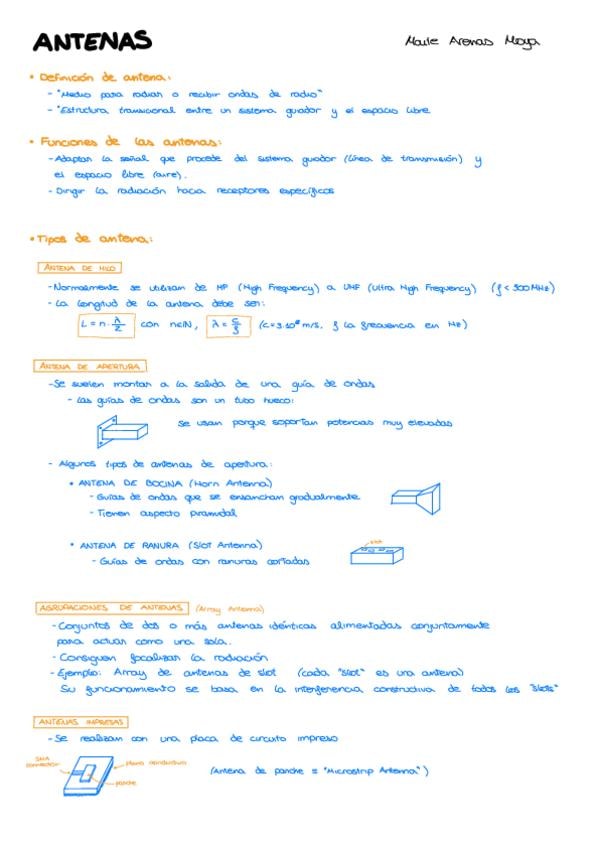 ANTENAS
Maile Arenas Moya
• Definición de antena:
- "Medio para radiar o recibir ondas de radio"
- "Estructura transicional entre un sistema guiador y el espacio libre
• Funciones de las antenas:
- Adaptan la señal que procede del sistema guiador (línea de transmisión) y
el espacio libre (aire).
- Dirigir la radiación hacia receptores específicos
• Tipos de antena:
ANTENA DE HILO
- Normalmente se utilizan de HF (High Frequency) a UHF (Ultra High Frequency) (f < 300 MHz)
- La longitud de la antena debe ser:
L = n · λ/2 con n∈ℕ, λ = c/f (c = 3·10⁸ m/s, f la frecuencia en Hz)
ANTENA DE APERTURA
- Se suelen montar a la salida de una guía de ondas
- Las guías de ondas son un tubo hueco:
Se usan porque soportan potencias muy elevadas
- Algunos tipos de antenas de apertura:
• ANTENA DE BOCINA (Horn Antenna)
- Guías de ondas que se ensanchan gradualmente
- Tienen aspecto piramidal
• ANTENA DE RANURA (Slot Antenna)
slot
- Guías de ondas con ranuras cortadas
AGRUPACIONES DE ANTENAS (Array Antenna)
- Conjuntos de dos o más antenas idénticas alimentadas conjuntamente
para actuar como una sola.
- Consiguen focalizar la radiación
- Ejemplo: Array de antenas de slot (cada "slot" es una antena)
Su funcionamiento se basa en la interferencia constructiva de todos los "slots"
ANTENAS IMPRESAS
- Se realizan con una placa de circuito impreso
SMA
connector
plano conductivo
parche
(Antena de parche = "Microstrip Antenna")